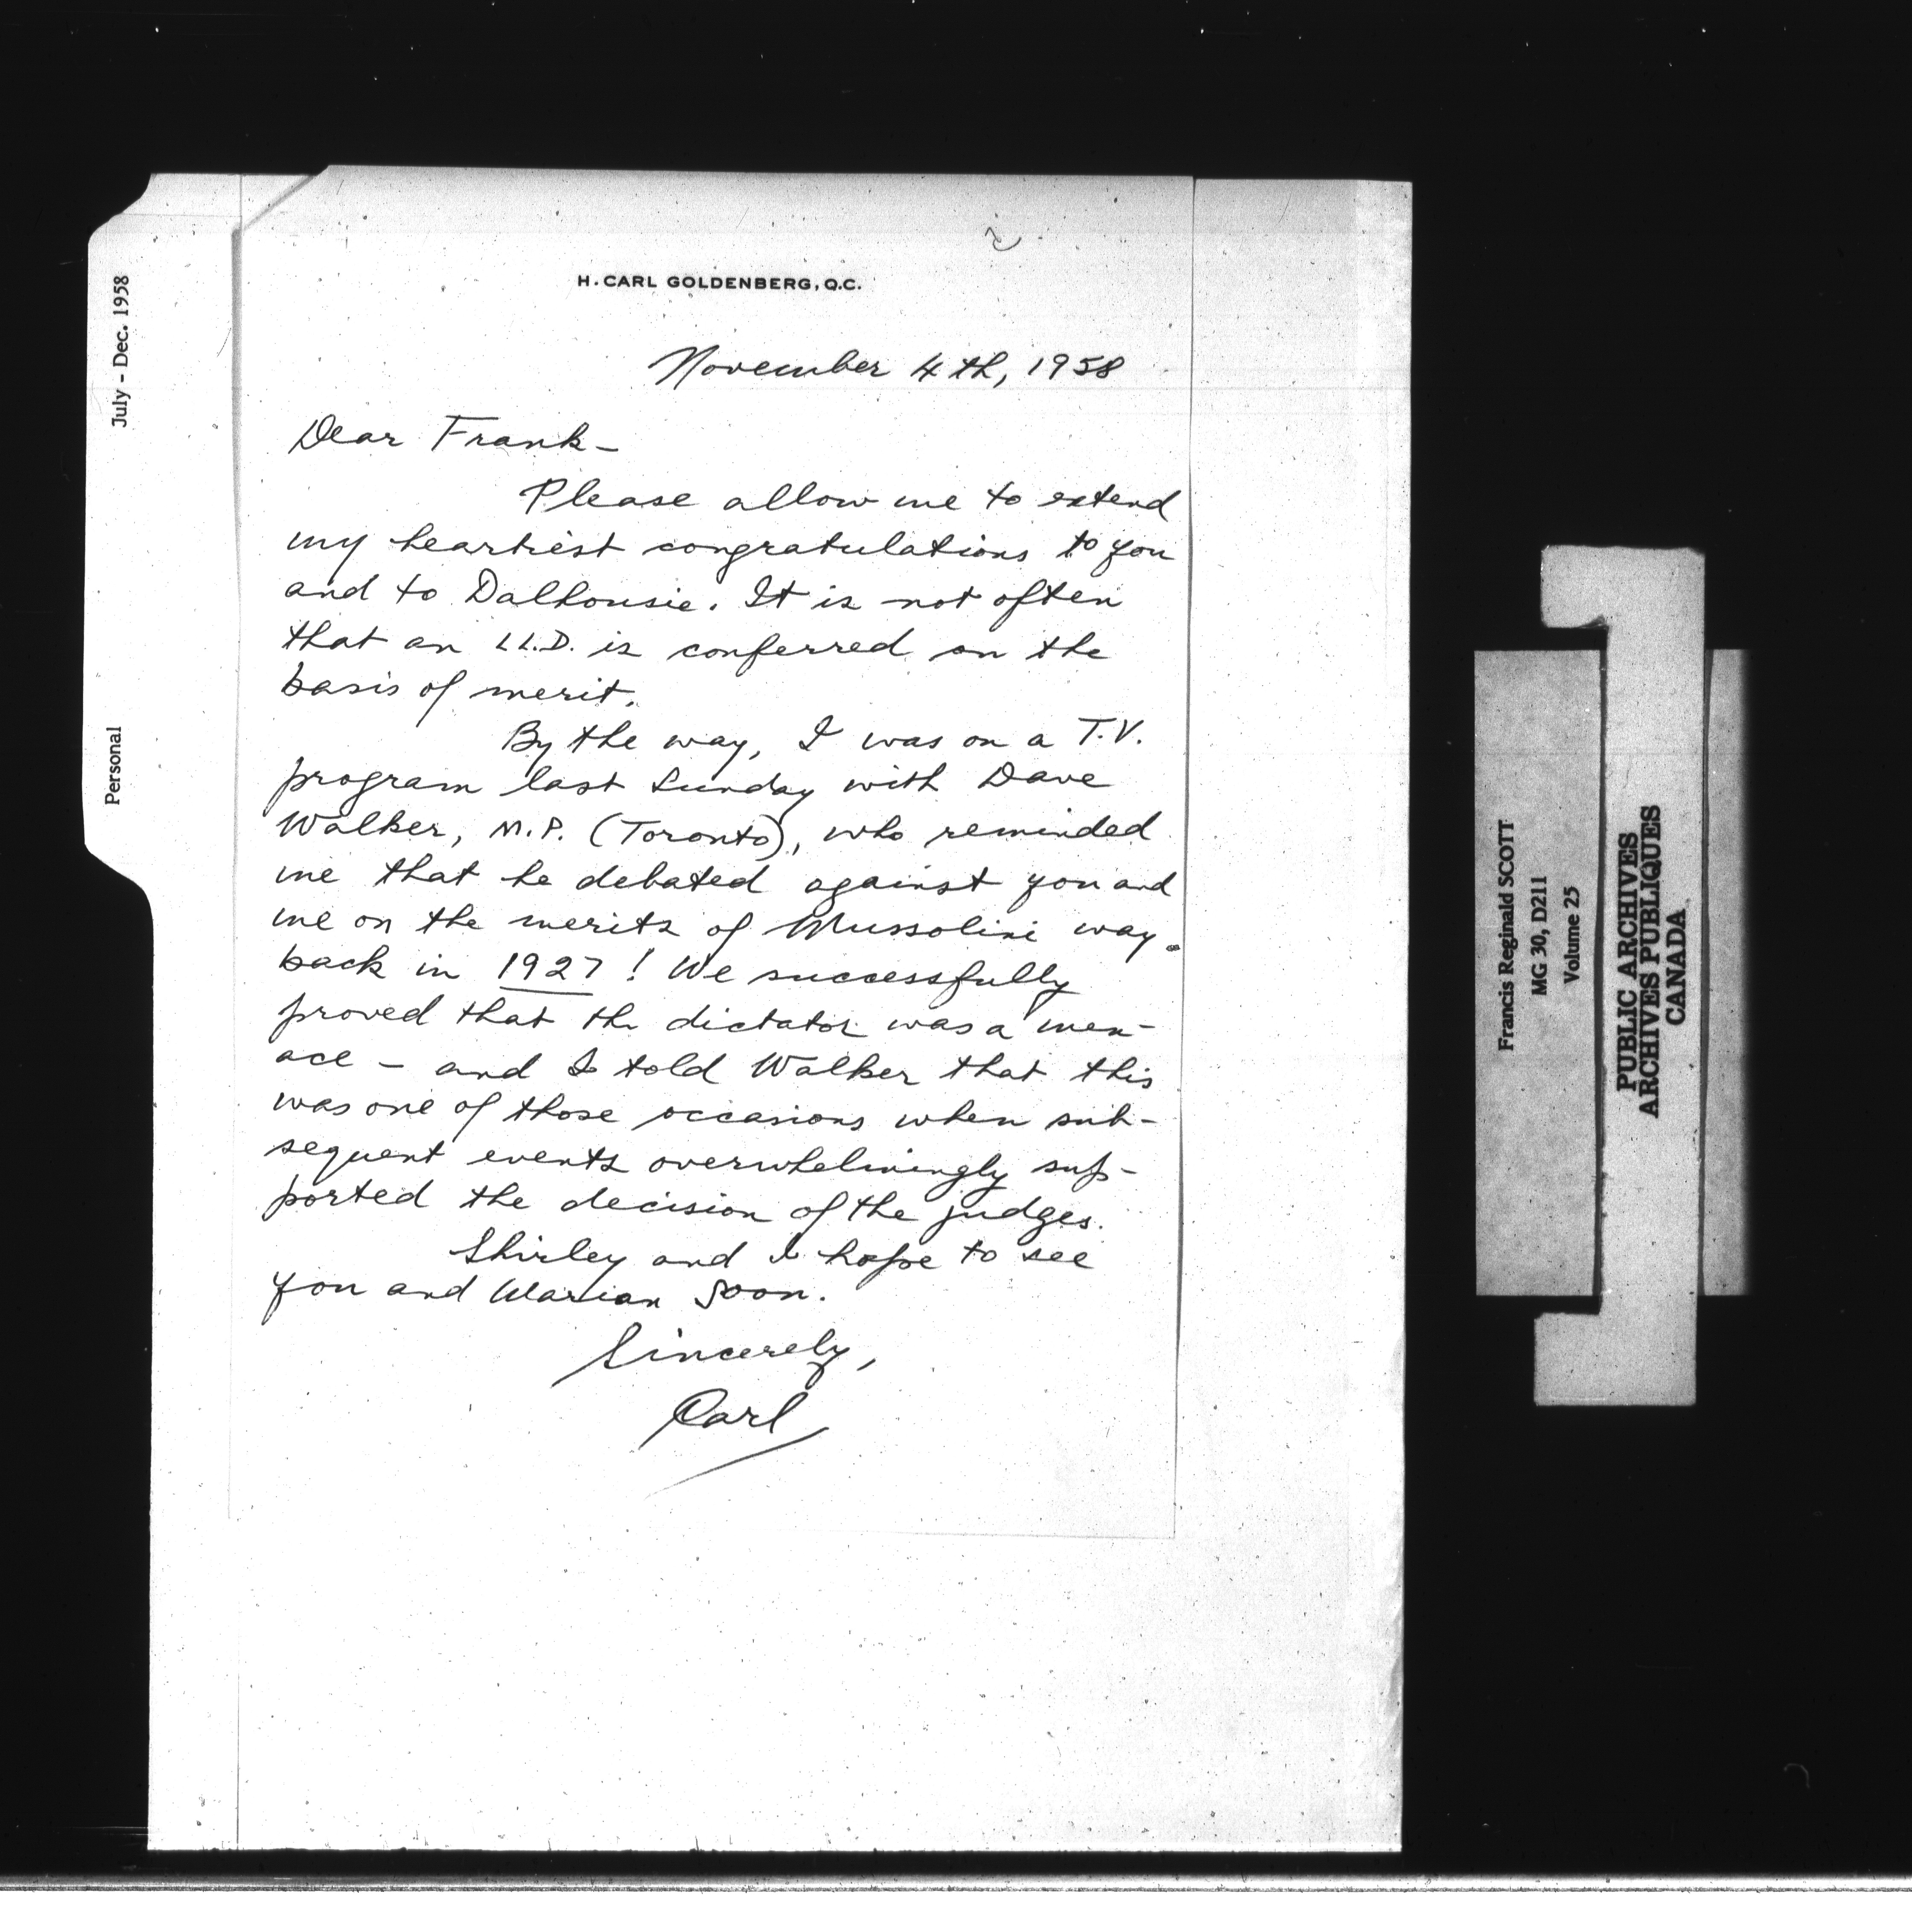 H. CARL GOLDENBERG, Q.C.
November 4th, 1958
Dear Frank -
Please allow me to extend
my heartiest congratulations to you
and to Dalhousie. It is not often
that an LL.D. is conferred on the
basis of merit.
By the way, I was on a T.V.
program last Sunday with Dave
Walker, M.P. (Toronto), who reminded
me that he debated against you and
me on the merits of Mussolini way
back in 1927! We successfully
proved that the dictator was a men-
ace - and I told Walker that this
was one of those occasions when sub-
sequent events overwhelmingly sup-
ported the decision of the judges.
Shirley and I hope to see
you and Marian soon.
Sincerely,
Carl
July - Dec. 1958
Personal
Francis Reginald SCOTT
MG 30, D211
Volume 25
PUBLIC ARCHIVES
ARCHIVES PUBLIQUES
CANADA